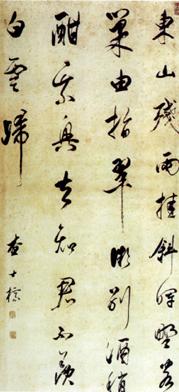 東山殘雨掛斜暉野客
巢由指翠微別酒稍
酣乘興去知君不羨
白雲歸
查士標